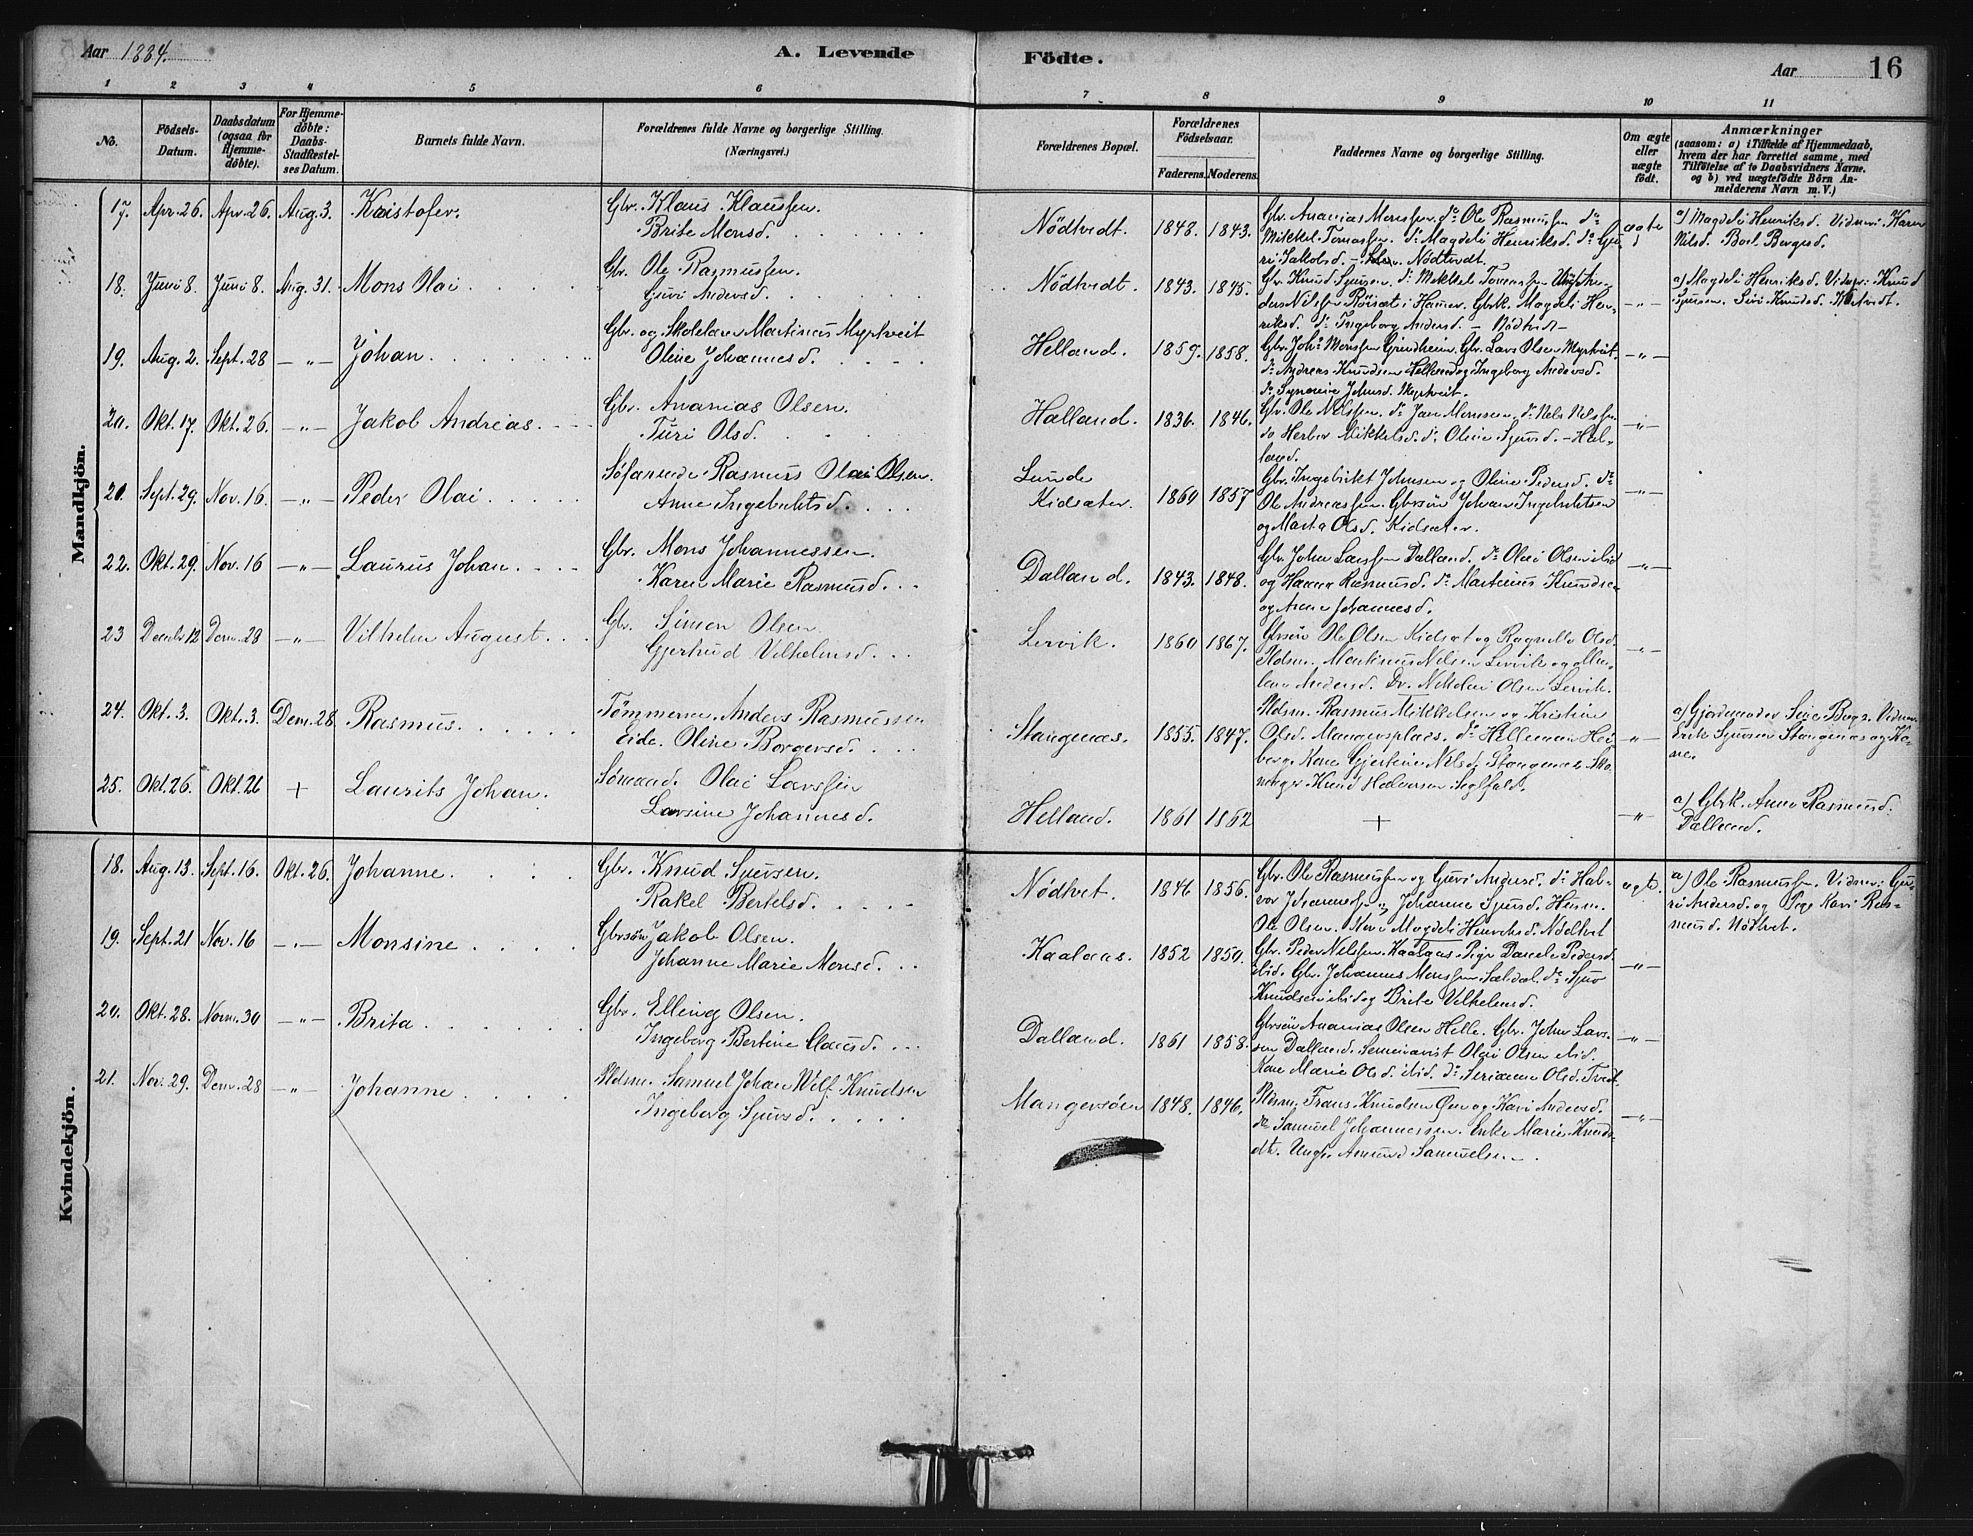 Aar 1884.
A. Levende Födte.
Aar 16
1 2 3 4 5 6 7 8 9 10 11
No.
Födsels-Datum.
Daabsdatum (ogsaa for Hjemme-döbte).
For Hjemme-döbte: Daabs-Stadfæstel-ses Datum.
Barnets fulde Navn.
Forældrenes fulde Navne og borgerlige Stilling.
(Næringsvei.)
Forældrenes Bopæl.
Forældrenes Födselsaar.
Faderens. Moderens.
Faddernes Navne og borgerlige Stilling.
Om ægte eller uægte födt.
Anmærkninger
(saasom: a) i Tilfælde af Hjemmedaab, hvem der har forrettet samme, med Tilföielse af to Daabsvidners Navne. og b) ved uægtefödte Börn An-melderens Navn m. V.)
Mandkjön.
17. Apr. 26. Apr. 26. Aug. 3. Kristofer. Gbr. Klaus Klaussen. Brite Monsd. Nödtvedt. 1848. 1843.
Gbr. Ananias Monssen. do Ole Rasmussen do
Mikkel Tomassen. do Magdeli Henriksd. do Gu-
ri Jakobsd. Nödtvedt. ægte
a) Magdeli Henriksd. Vidner: Karen
Nilsd. Borl. Borgesd.
18. Juni 8. Juni 8. Aug. 31. Mons Olai Gbr. Ole Rasmussen. Guri Andersd. Nödtvedt. 1843. 1845.
Gbr. Knud Sjursen. do Mikkel Tomassen
ders Nilssen Röisæt i Hamer. Gbrk. Magdeli Hen-
riksd. do Ingeborg Andersd. - Nödtvedt - - " -
a) Magdeli Henriksd. Vidner: Knud
Sjursen. Siri Knudsd. Nödtvedt.
19. Aug. 2. Sept. 28 - " - Johan. Gbr. og Skolelærer Martinus Myrtveit Oline Johannesd. Helland. 1859. 1858.
Gbr. Johs Monssen Grindheim. Gbr. Lars Olsen Myrtveit.
do Andreas Knudsen Helland og Ingeborg Andersd.
do Synneve Johnsd. Myrtveit. - " -
20. Okt. 17. Okt. 26. - " - Jakob Andreas. Gbr. Ananias Olsen. Turi Olsd. Halland. 1836. 1846.
Gbr. Ole Nilssen. do Jan Monssen, do Nils Nilssen
do Herber Mikkelsd. do Oline Sjursd. - Hal-
land. - " -
20. Sept. 29. Nov. 16. - " - Peder Olai Söfarende Rasmus Olai Olsen. Anne Ingebrektsd. Lunde Kidsæter. 1860 1857
Gbr. Ingebrikt Johnsen og Oline Pedersd. do
Ole Andreassen. Gbrsön Johan Ingebriktsen
og Marta Olsd. Kidsæter. - " -
22. Okt. 29. Nov. 16 - " - Laurus Johan. Gbr. Mons Johannessen. Karen Marie Rasmusd. Dalland. 1843. 1848.
Gbr. John Larssen Dalland. do Olai Olsen ibid
og Hanna Rasmusd. do Martinus Knudsen
og Anne Johannesd. - " -
23 Decmb. 12 Decm. 28 - " - Vilhelm August. Gbr. Simon Olsen. Gjertrud Vilhelmsd. Lervik. 1860 1867.
Gbrsön Ole Olsen Kidsæt og Ragnilla Olsd.
Pldsm. Martinus Nilsen Lervik og Ma-
lene Andersd. Nikolai Olsen Lervik. - " -
24. Okt. 3. Okt. 3. Decm. 28 Rasmus. Tömmerm. Anders Rasmussen Eide. Oline Borgersd. Stangenæs. 1855. 1847.
Pldsm. Rasmus Mikkelsen og Kristine
Olsd. Mangersplads. do
berg. Kone Gjertine Nilsd. Stangenæs.
Knud Halvorsen - " -
a) Gjordemoder
Sjursen Stangenæs og Ko-
ne.
25. Okt. 26. Okt. 26 + Laurits Johan. Sömand. Olai Larssen Larsine Johannesd. Helland. 1861 1862 + - " -
a) Gbrk. Anne Rasmusd.
Dalland.
Kvindekjön.
18. Aug. 13. Sept. 16. Okt. 26. Johanne. Gbr. Knud Sjursen. Rakel Bertelsd. Nödtvet. 1846. 1856.
Gbr. Ole Rasmussen og Guri Andersd. do Hal-
vor Johannessen, Johanne Sjursd. Husm.
Ole Olsen. Kone Magdeli Henriksd. Nödtvet ægte.
a) Ole Rasmussen. Vidner: Gu-
ri Andersd. og Pige Kari Ras-
musd. Nödtvet.
19. Sept. 21 Nov. 16 - " - Monsine Gbrsön Jakob Olsen. Johanne Marie Monsd. Kaalaas. 1852 1850.
Gbr. Peder Nilssen Kaalaas. Pige Pedersd.
ibid. Gbr. Johannes Monssen Sældal. do Sjur
Knudsen ibid og Brite Vilhelmsd. - " -
20. Okt. 28. Novm. 30 - " - Brita Gbr. Elling Olsen. Ingeborg Bertine Clausd. Dalland. 1861 1858.
Gbrsön Ananias Olsen Helle. Gbr. John Lars-
sen Dalland. Seminarist Olai Olsen ibid.
Kone Marie Olsd. ibid. do Serianne Olsd. Tvet. - " -
21. Nov. 29. Decm. 28 - " - Johanne Pldsm. Samuel Johan Wilf. Knudsen Ingeborg Sjursd. Mangersöen 1848. 1846.
Pldsm. Frans Knudsen og Kari Andersd.
do Samuel Johannessen. Enke Marie Knuds-
dtr. Ungk. Amund Samuelsen. - " -